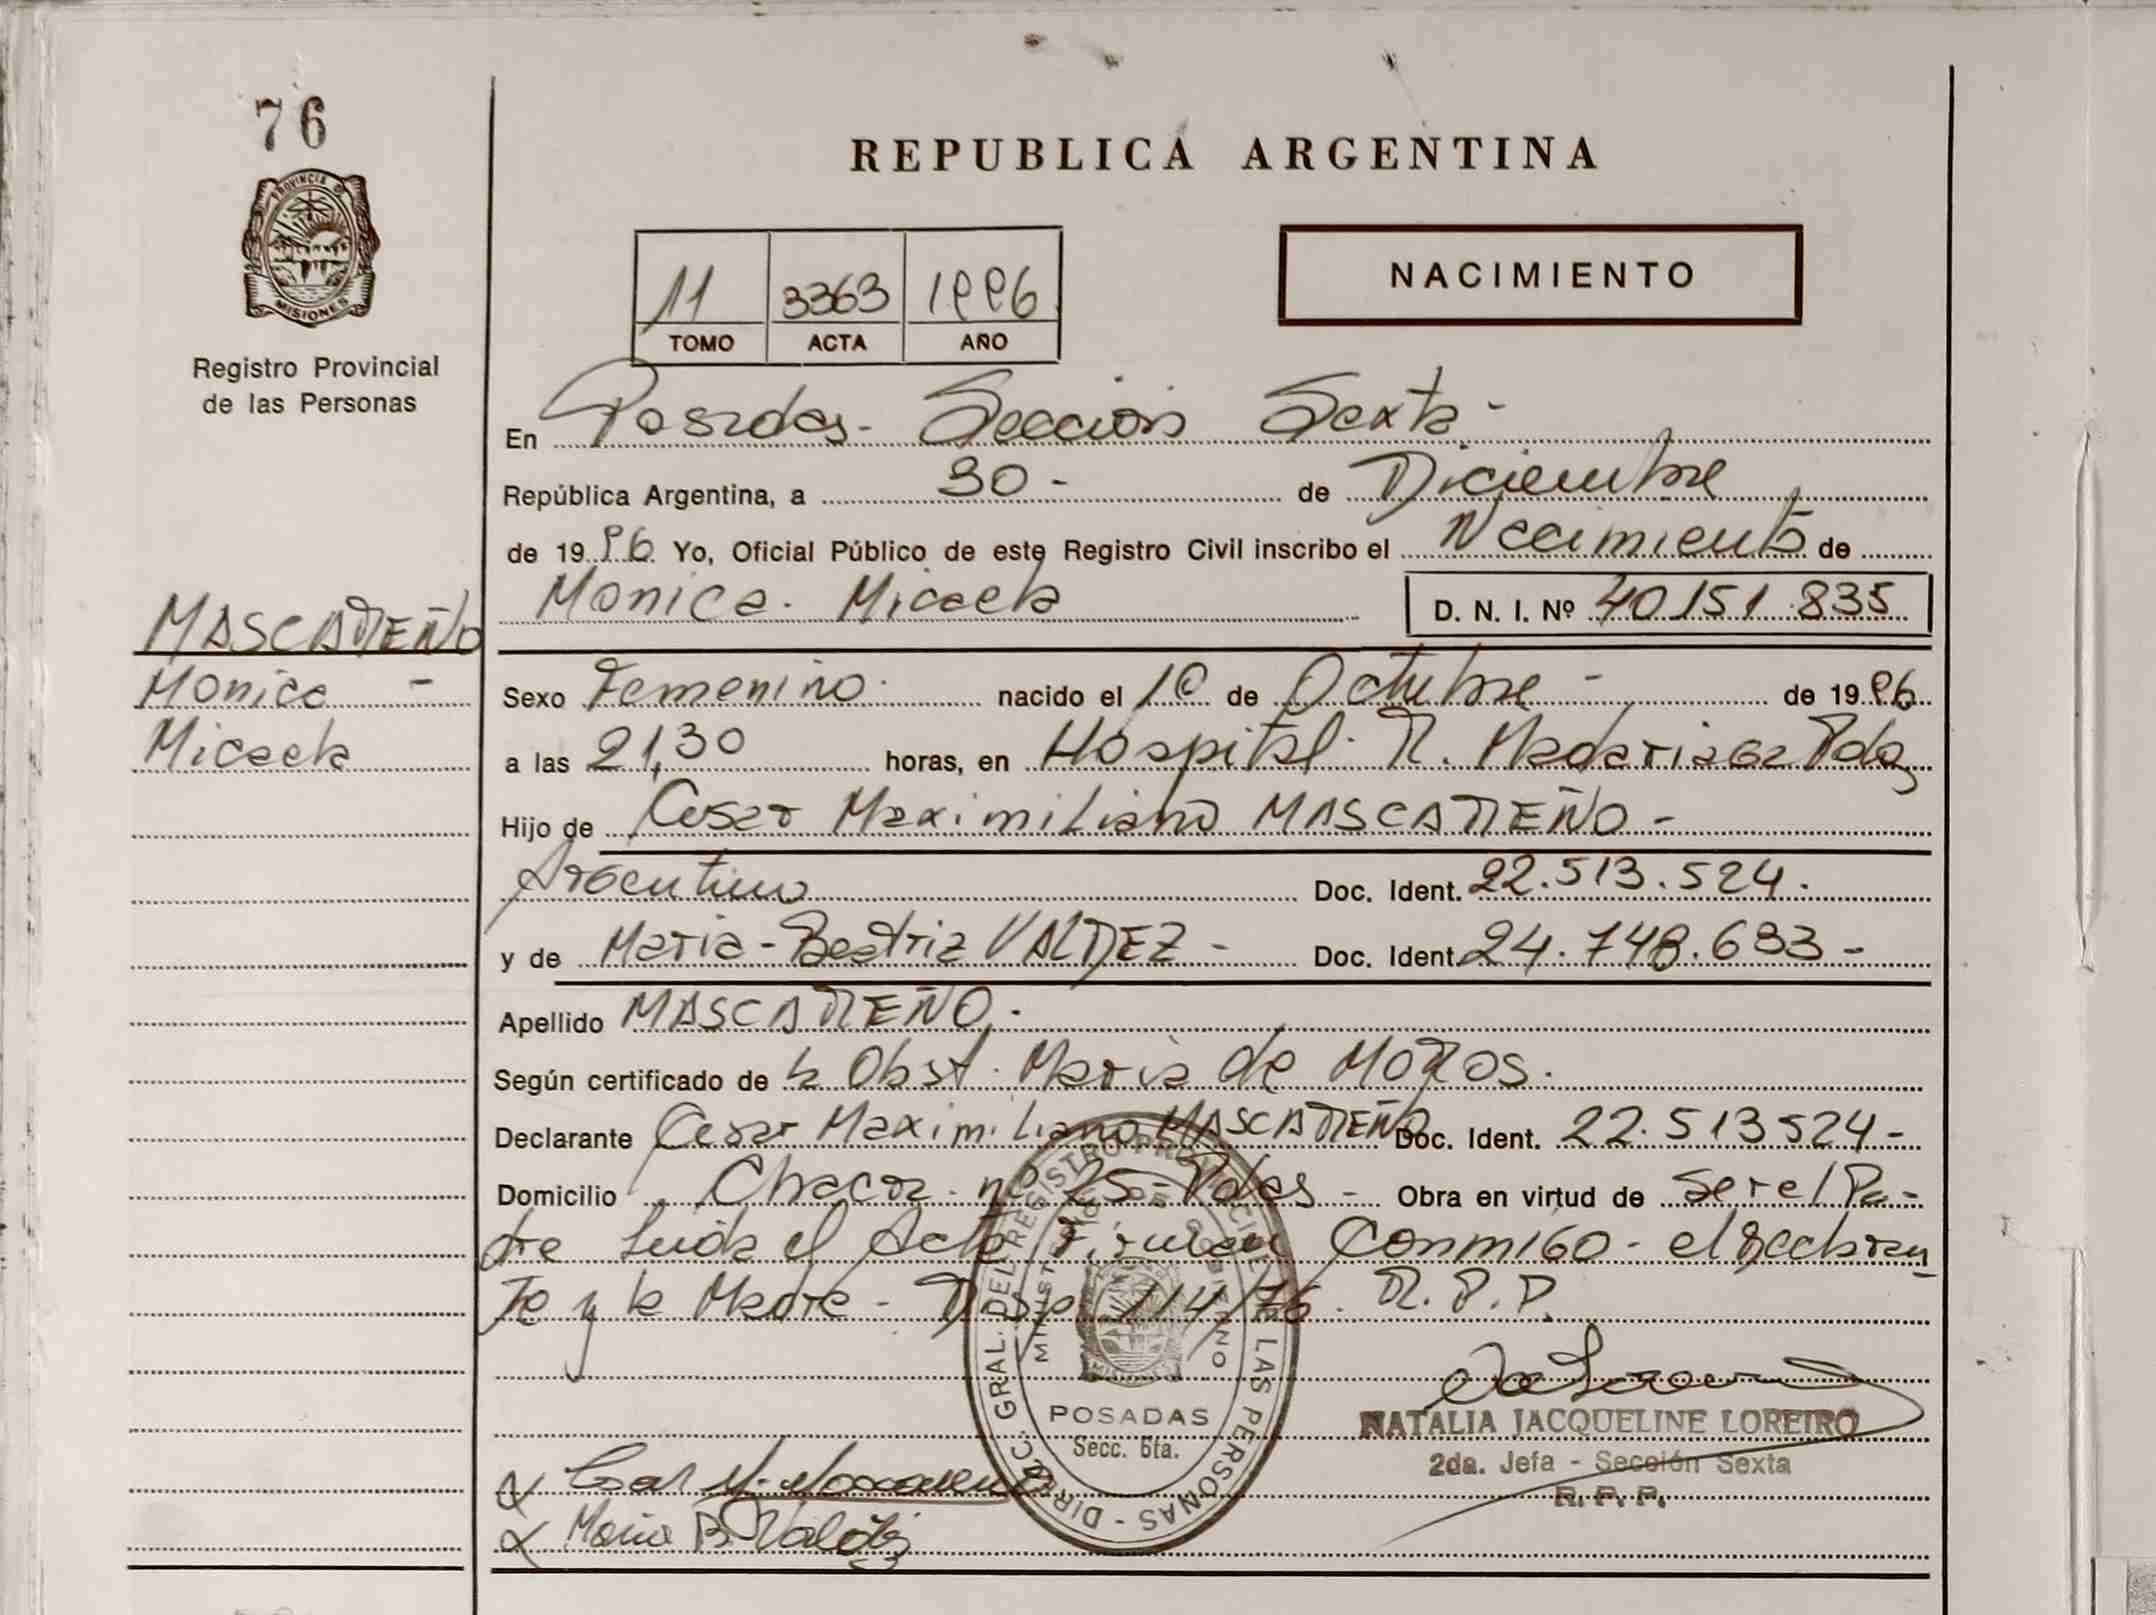 76
PROVINCIA DE
MISIONES
Registro Provincial
de las Personas
MASCAREÑO
Monica -
Micaela
REPUBLICA ARGENTINA
NACIMIENTO
11 3363 1996
TOMO ACTA AÑO
En Posadas - Sección Sexta -
República Argentina, a 30 - de Diciembre
de 1996 Yo, Oficial Público de este Registro Civil inscribo el Nacimiento de
Monica - Micaela D. N. I. Nº 40.151.835
Sexo Femenino. nacido el 10 de Octubre - de 1996
a las 21,30 horas, en Hospital R. Madariaga Pdas
Hijo de Cesar Maximiliano MASCAREÑO -
Argentino Doc. Ident. 22.513.524.
y de Maria - Beatriz VALDEZ - Doc. Ident. 24.748.633 -
Apellido MASCAREÑO.
Según certificado de la Obst. Maria de
Declarante Cesar Maximiliano MASCAREÑO Doc. Ident. 22.513524 -
Domicilio Chacra nº 25 - Pdas - Obra en virtud de ser el Pa-
dre Leida el Acta Firman Conmigo - el Declaran
te y la Madre - Disp. 114/76. R.P.P.
DIRECC. GRAL. DEL REGISTRO PROVINCIAL DE LAS PERSONAS -
MINISTERIO DE GOBIERNO
POSADAS
Secc. 6ta.
NATALIA JACQUELINE LOREIRO
2da. Jefa - Sección Sexta
R. P. P.
Maria B. Valdez